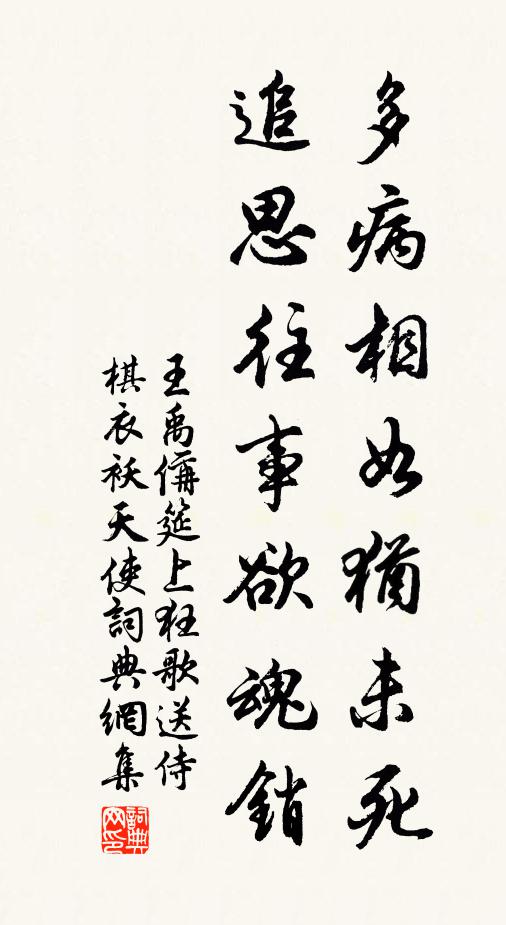 多病相如猶未死
追思往事欲魂銷
王禹偁筵上狂歌送侍
棋衣袄天使詞典網集
詞典網印